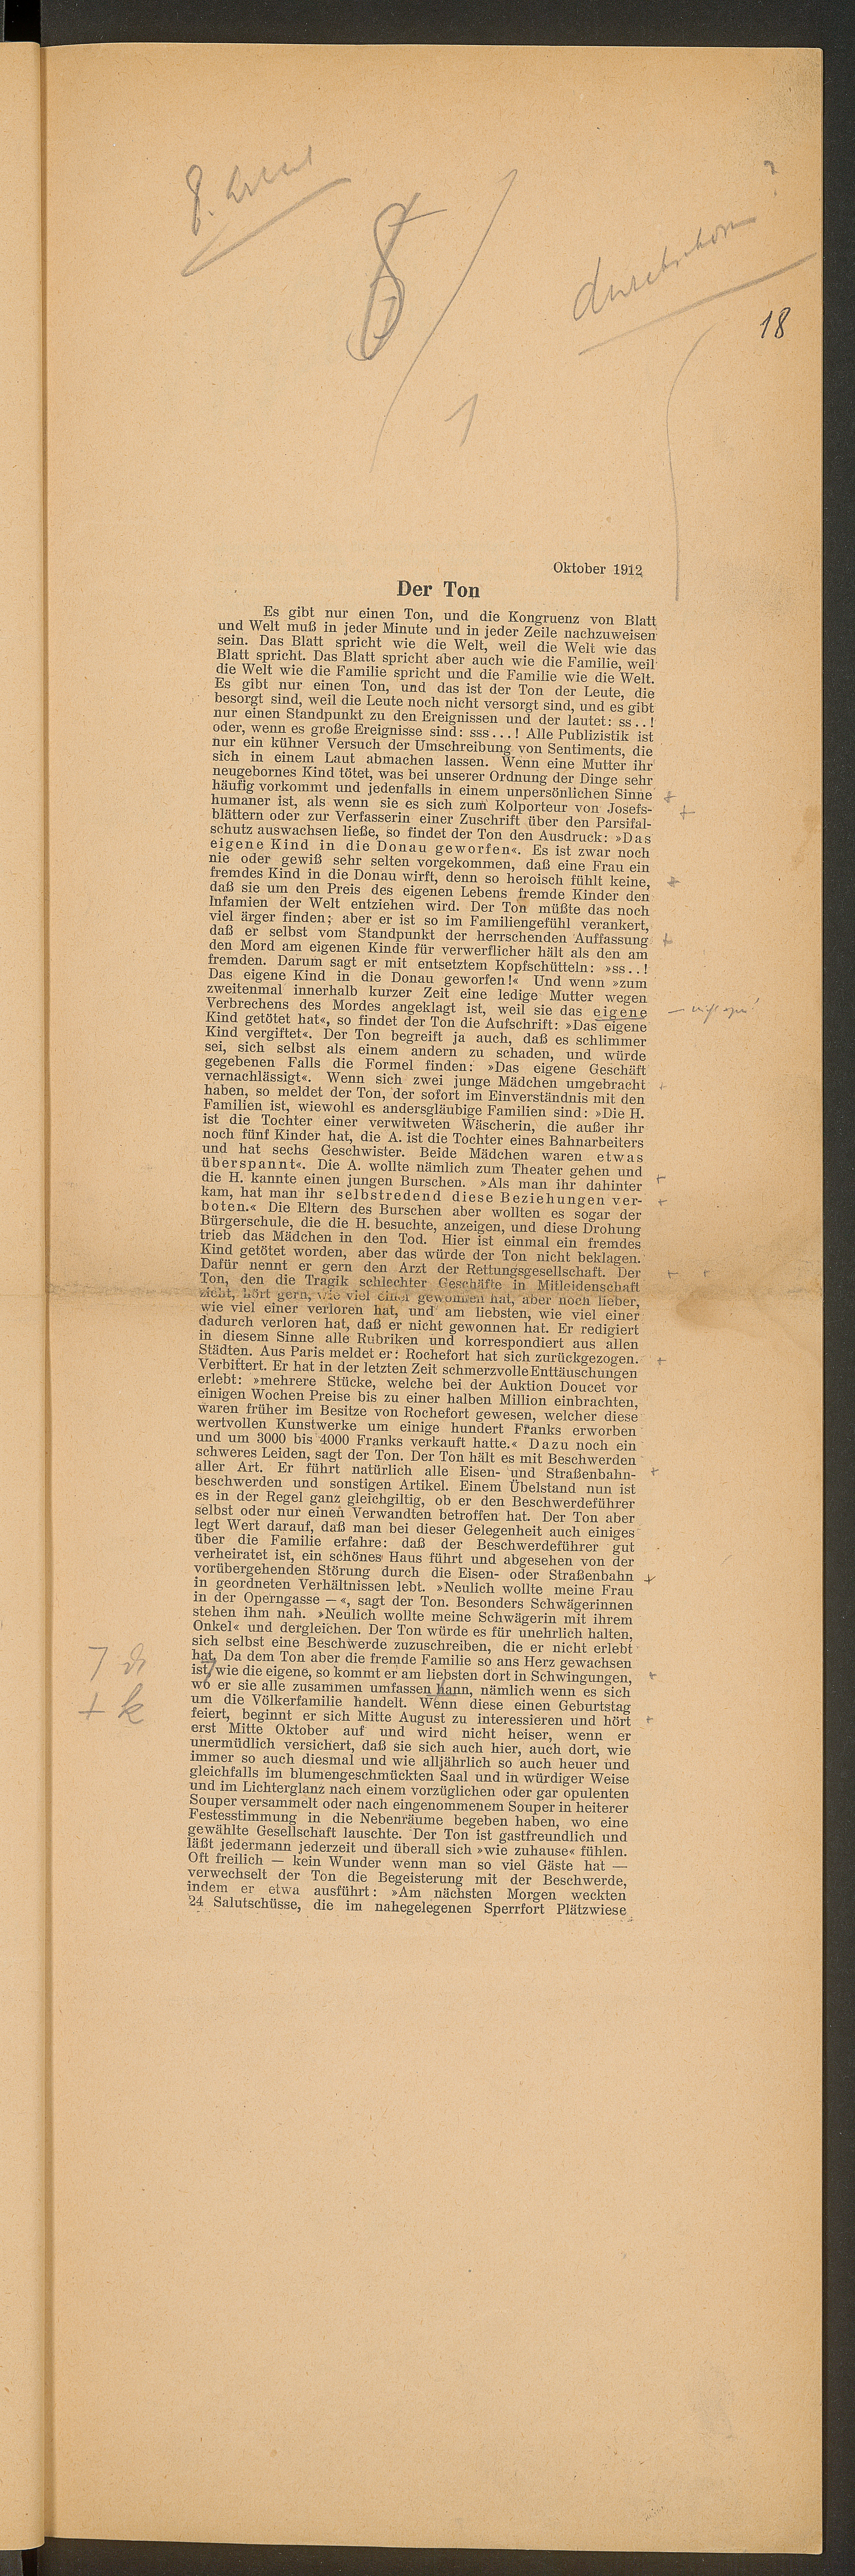 8
durchschossen ?
18
1
Oktober 1912
Der Ton
Es gibt nur einen Ton, und die Kongruenz von Blatt
und Welt muß in jeder Minute und in jeder Zeile nachzuweisen
sein. Das Blatt spricht wie die Welt, weil die Welt wie das
Blatt spricht. Das Blatt spricht aber auch wie die Familie, weil
die Welt wie die Familie spricht und die Familie wie die Welt.
Es gibt nur einen Ton, und das ist der Ton der Leute, die
besorgt sind, weil die Leute noch nicht versorgt sind, und es gibt
nur einen Standpunkt zu den Ereignissen und der lautet: ss..!
oder, wenn es große Ereignisse sind: sss...! Alle Publizistik ist
nur ein kühner Versuch der Umschreibung von Sentiments, die
sich in einem Laut abmachen lassen. Wenn eine Mutter ihr
neugebornes Kind tötet, was bei unserer Ordnung der Dinge sehr
häufig vorkommt und jedenfalls in einem unpersönlichen Sinne
humaner ist, als wenn sie es sich zum Kolporteur von Josefs-
blättern oder zur Verfasserin einer Zuschrift über den Parsifal-
schutz auswachsen ließe, so findet der Ton den Ausdruck: »Das
eigene Kind in die Donau geworfen«. Es ist zwar noch
nie oder gewiß sehr selten vorgekommen, daß eine Frau ein
fremdes Kind in die Donau wirft, denn so heroisch fühlt keine,
daß sie um den Preis des eigenen Lebens fremde Kinder den
Infamien der Welt entziehen wird. Der Ton müßte das noch
viel ärger finden; aber er ist so im Familiengefühl verankert,
daß er selbst vom Standpunkt der herrschenden Auffassung
den Mord am eigenen Kinde für verwerflicher hält als den am
fremden. Darum sagt er mit entsetztem Kopfschütteln: »ss..!
Das eigene Kind in die Donau geworfen!« Und wenn »zum
zweitenmal innerhalb kurzer Zeit eine ledige Mutter wegen
Verbrechens des Mordes angeklagt ist, weil sie das eigene
Kind getötet hat«, so findet der Ton die Aufschrift: »Das eigene
Kind vergiftet«. Der Ton begreift ja auch, daß es schlimmer
sei, sich selbst als einem andern zu schaden, und würde
gegebenen Falls die Formel finden: »Das eigene Geschäft
vernachlässigt«. Wenn sich zwei junge Mädchen umgebracht
haben, so meldet der Ton, der sofort im Einverständnis mit den
Familien ist, wiewohl es andersgläubige Familien sind: »Die H.
ist die Tochter einer verwitweten Wäscherin, die außer ihr
noch fünf Kinder hat, die A. ist die Tochter eines Bahnarbeiters
und hat sechs Geschwister. Beide Mädchen waren etwas
überspannt«. Die A. wollte nämlich zum Theater gehen und
die H. kannte einen jungen Burschen. »Als man ihr dahinter
kam, hat man ihr selbstredend diese Beziehungen ver-
boten.« Die Eltern des Burschen aber wollten es sogar der
Bürgerschule, die die H. besuchte, anzeigen, und diese Drohung
trieb das Mädchen in den Tod. Hier ist einmal ein fremdes
Kind getötet worden, aber das würde der Ton nicht beklagen.
Dafür nennt er gern den Arzt der Rettungsgesellschaft. Der
Ton, den die Tragik schlechter Geschäfte in Mitleidenschaft
zieht, hört gern, wie viel einer gewonnen hat, aber noch lieber,
wie viel einer verloren hat, und am liebsten, wie viel einer
dadurch verloren hat, daß er nicht gewonnen hat. Er redigiert
in diesem Sinne alle Rubriken und korrespondiert aus allen
Städten. Aus Paris meldet er: Rochefort hat sich zurückgezogen.
Verbittert. Er hat in der letzten Zeit schmerzvolle Enttäuschungen
erlebt: »mehrere Stücke, welche bei der Auktion Doucet vor
einigen Wochen Preise bis zu einer halben Million einbrachten,
waren früher im Besitze von Rochefort gewesen, welcher diese
wertvollen Kunstwerke um einige hundert Franks erworben
und um 3000 bis 4000 Franks verkauft hatte.« Dazu noch ein
schweres Leiden, sagt der Ton. Der Ton hält es mit Beschwerden
aller Art. Er führt natürlich alle Eisen- und Straßenbahn-
beschwerden und sonstigen Artikel. Einem Übelstand nun ist
es in der Regel ganz gleichgiltig, ob er den Beschwerdeführer
selbst oder nur einen Verwandten betroffen hat. Der Ton aber
legt Wert darauf, daß man bei dieser Gelegenheit auch einiges
über die Familie erfahre: daß der Beschwerdeführer gut
verheiratet ist, ein schönes Haus führt und abgesehen von der
vorübergehenden Störung durch die Eisen- oder Straßenbahn
in geordneten Verhältnissen lebt. »Neulich wollte meine Frau
in der Operngasse — «, sagt der Ton. Besonders Schwägerinnen
stehen ihm nah. »Neulich wollte meine Schwägerin mit ihrem
Onkel« und dergleichen. Der Ton würde es für unehrlich halten,
sich selbst eine Beschwerde zuzuschreiben, die er nicht erlebt
hat. Da dem Ton aber die fremde Familie so ans Herz gewachsen
ist, wie die eigene, so kommt er am liebsten dort in Schwingungen,
wo er sie alle zusammen umfassen kann, nämlich wenn es sich
um die Völkerfamilie handelt. Wenn diese einen Geburtstag
feiert, beginnt er sich Mitte August zu interessieren und hört
erst Mitte Oktober auf und wird nicht heiser, wenn er
unermüdlich versichert, daß sie sich auch hier, auch dort, wie
immer so auch diesmal und wie alljährlich so auch heuer und
gleichfalls im blumengeschmückten Saal und in würdiger Weise
und im Lichterglanz nach einem vorzüglichen oder gar opulenten
Souper versammelt oder nach eingenommenem Souper in heiterer
Festesstimmung in die Nebenräume begeben haben, wo eine
gewählte Gesellschaft lauschte. Der Ton ist gastfreundlich und
läßt jedermann jederzeit und überall sich »wie zuhause« fühlen.
Oft freilich — kein Wunder wenn man so viel Gäste hat —
verwechselt der Ton die Begeisterung mit der Beschwerde,
indem er etwa ausführt: »Am nächsten Morgen weckten
24 Salutschüsse, die im nahegelegenen Sperrfort Plätzwiese